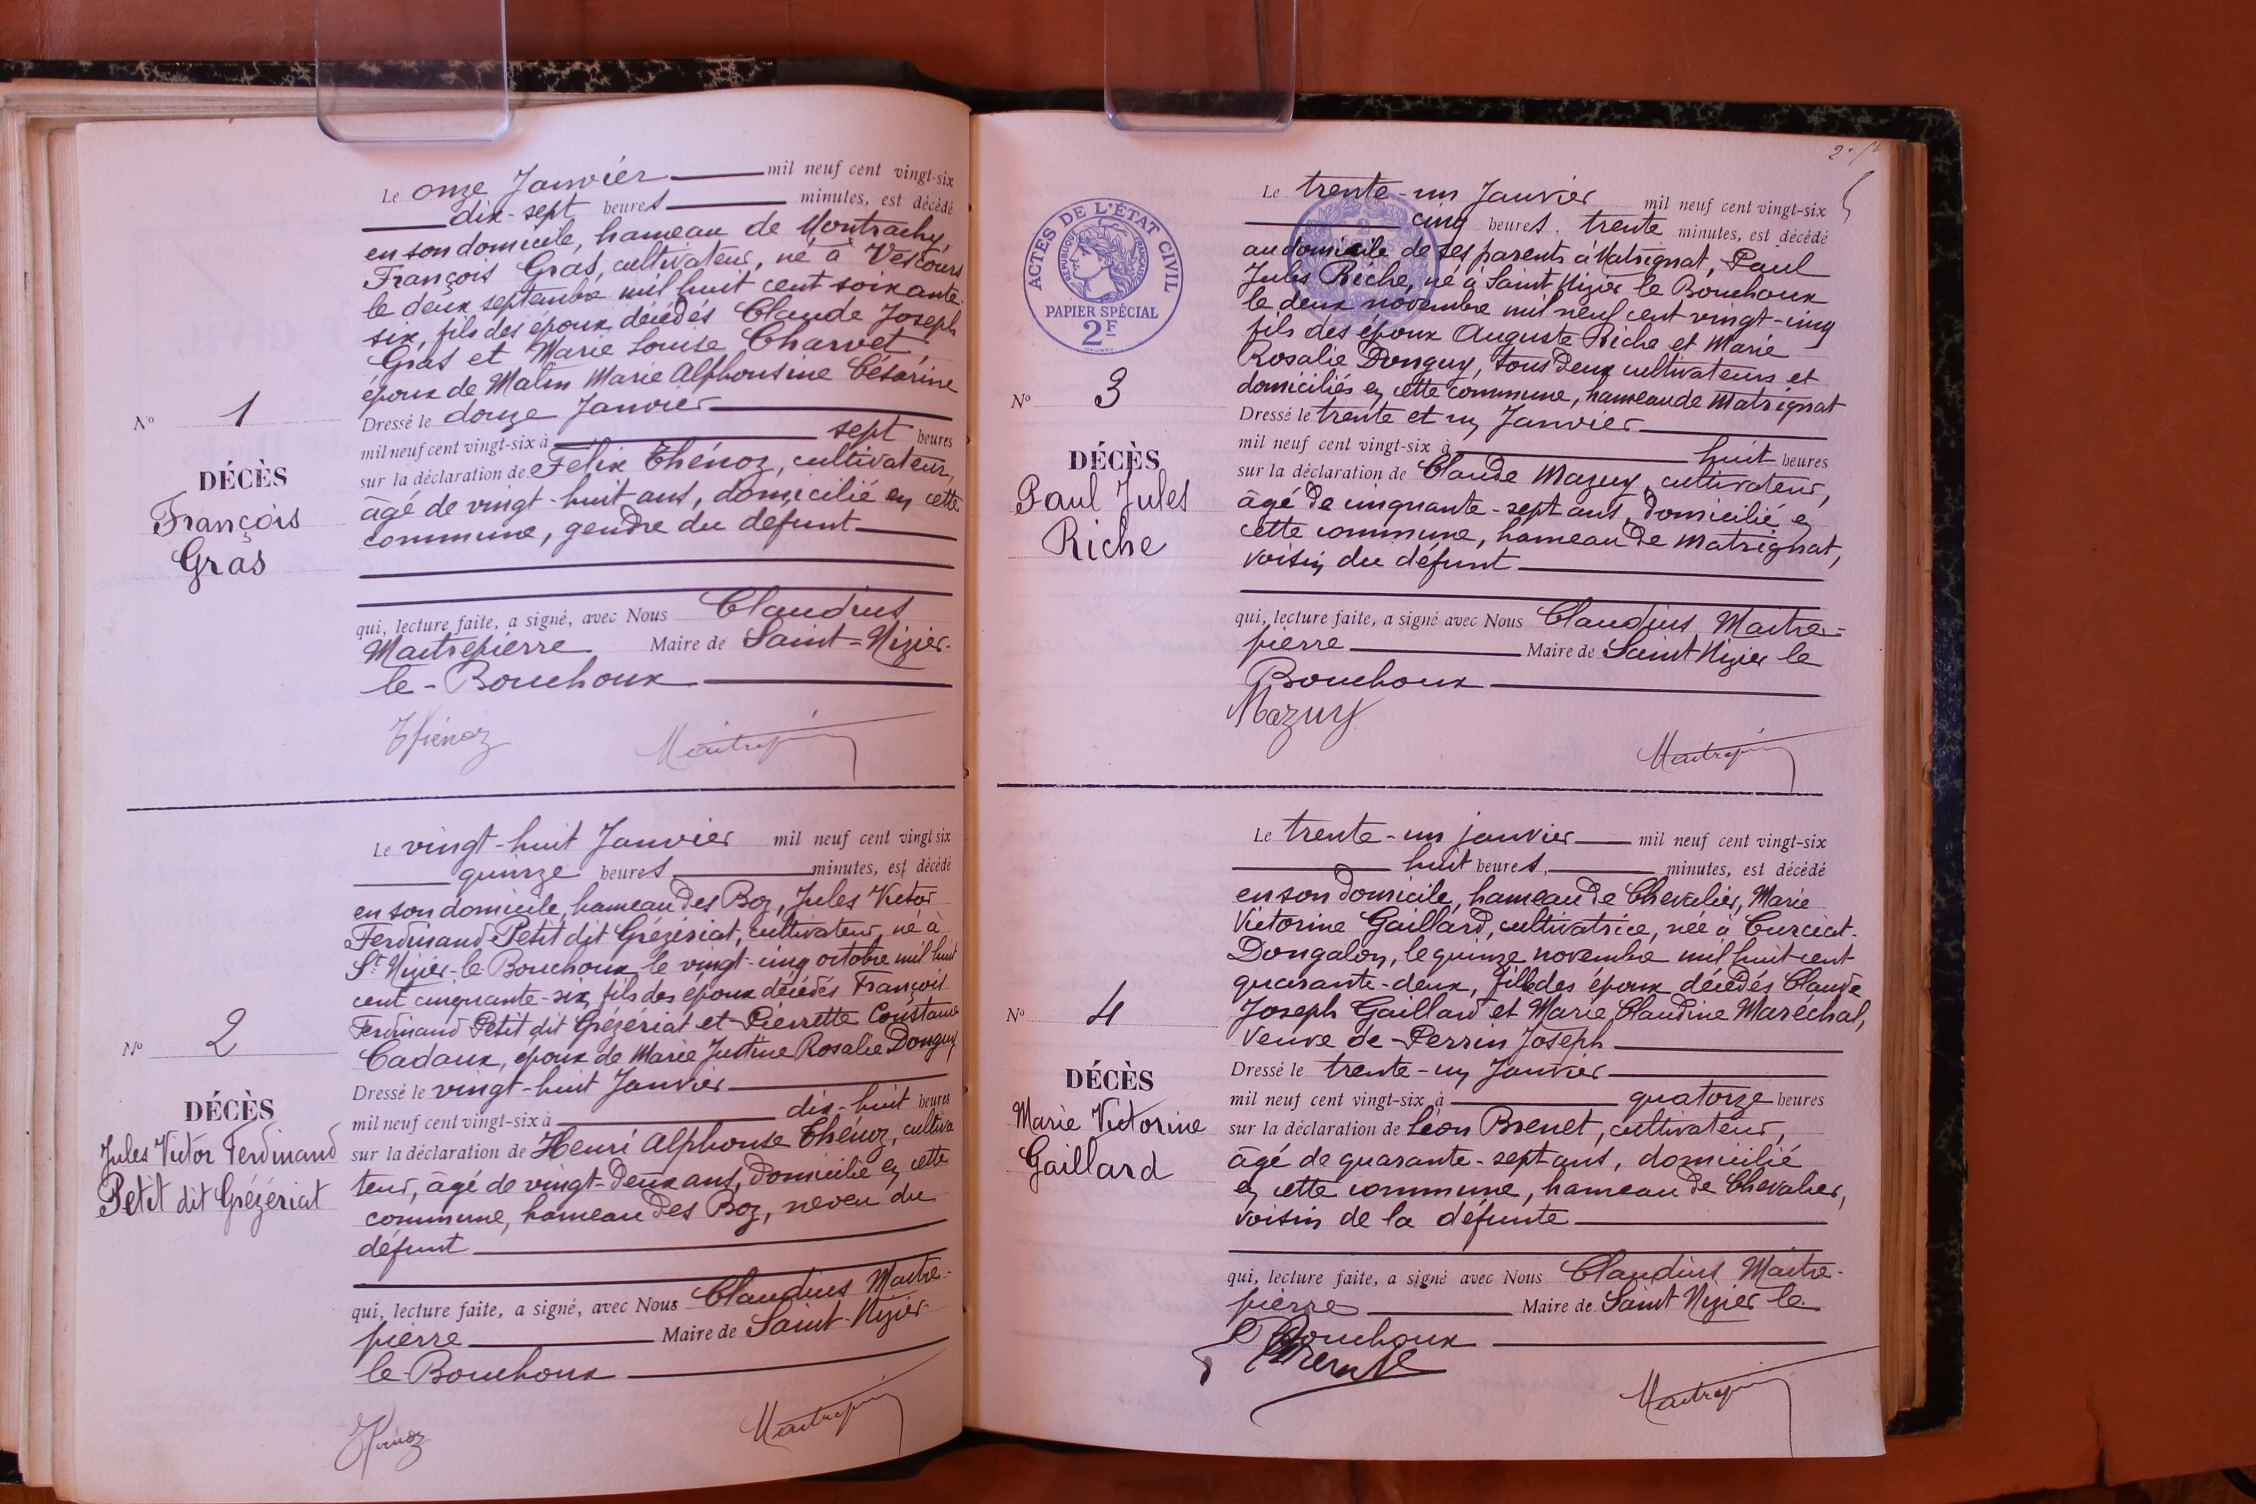 Le onze Janvier mil neuf cent vingt-six
dix-sept heures minutes, est décédé
en son domicile, hameau de Montrachy,
François Gras, cultivateur, né à Vescours
le deux septembre mil huit cent soixante
six, fils des époux décédés Claude Joseph
Gras et Marie Louise Charvet,
époux de Matin Marie Alphonsine Césarine
Dressé le douze Janvier
mil neuf cent vingt-six à sept heures
sur la déclaration de Félix Thénoz, cultivateur,
âgé de vingt-huit ans, domicilié en cette
commune, gendre du défunt
qui, lecture faite, a signé, avec Nous Claudius
Maitrepierre Maire de Saint-Nizier-
le-Bouchoux
Thénoz Maitrepierre
No 1
DÉCÈS
François
Gras
Le vingt-huit Janvier mil neuf cent vingt-six
quinze heures minutes, est décédé
en son domicile, hameau des Boz, Jules Victor
Ferdinand Petit dit Grézériat, cultivateur, né à
St Nizier-le-Bouchoux le vingt-cinq octobre mil huit
cent cinquante-six, fils des époux décédés François
Ferdinand Petit dit Grézériat et Pierrette Constance
Cadaux, époux de Marie Justine Rosalie Donguy
Dressé le vingt-huit Janvier
mil neuf cent vingt-six à dix-huit heures
sur la déclaration de Henri Alphonse Thénoz, cultiva
teur, âgé de vingt-deux ans, domicilié en cette
commune, hameau des Boz, neveu du
défunt
qui, lecture faite, a signé, avec Nous Claudius Maitre-
pierre Maire de Saint-Nizier-
le-Bouchoux
Thénoz Maitrepierre
No 2
DÉCÈS
Jules Victor Ferdinand
Petit dit Grézériat
ACTES DE L'ÉTAT CIVIL
RÉPUBLIQUE FRANÇAISE
PAPIER SPÉCIAL
2F
Le trente-un Janvier mil neuf cent vingt-six
cinq heures, trente minutes, est décédé
au domicile de ses parents à Matrignat, Paul
Jules Riche, né à Saint Nizier le Bouchoux
le deux novembre mil neuf cent vingt-cinq
fils des époux Auguste Riche et Marie
Rosalie Donguy, tous deux cultivateurs et
domiciliés en cette commune, hameau de Matrignat
Dressé le trente et un Janvier
mil neuf cent vingt-six à huit heures
sur la déclaration de Claude Mazuy, cultivateur,
âgé de cinquante-sept ans, domicilié en
cette commune, hameau de Matrignat,
voisin du défunt
qui, lecture faite, a signé avec Nous Claudius Maitre-
pierre Maire de Saint Nizier le
Bouchoux
Mazuy
Maitrepierre
No 3
DÉCÈS
Paul Jules
Riche
Le trente-un janvier mil neuf cent vingt-six
huit heures, minutes, est décédé
en son domicile, hameau de Chevalier, Marie
Victorine Gaillard, cultivatrice, née à Curciat-
Dongalon, le quinze novembre mil huit cent
quarante-deux, fille des époux décédés Claude
Joseph Gaillard et Marie Claudine Maréchal,
veuve de Perrin Joseph
Dressé le trente-un Janvier
mil neuf cent vingt-six à quatorze heures
sur la déclaration de Léon Brenet, cultivateur,
âgé de quarante-sept ans, domicilié
en cette commune, hameau de Chevalier,
voisin de la défunte
qui, lecture faite, a signé avec Nous Claudius Maitre-
pierre Maire de Saint Nizier le
Bouchoux
Maitrepierre
No 4
DÉCÈS
Marie Victorine
Gaillard